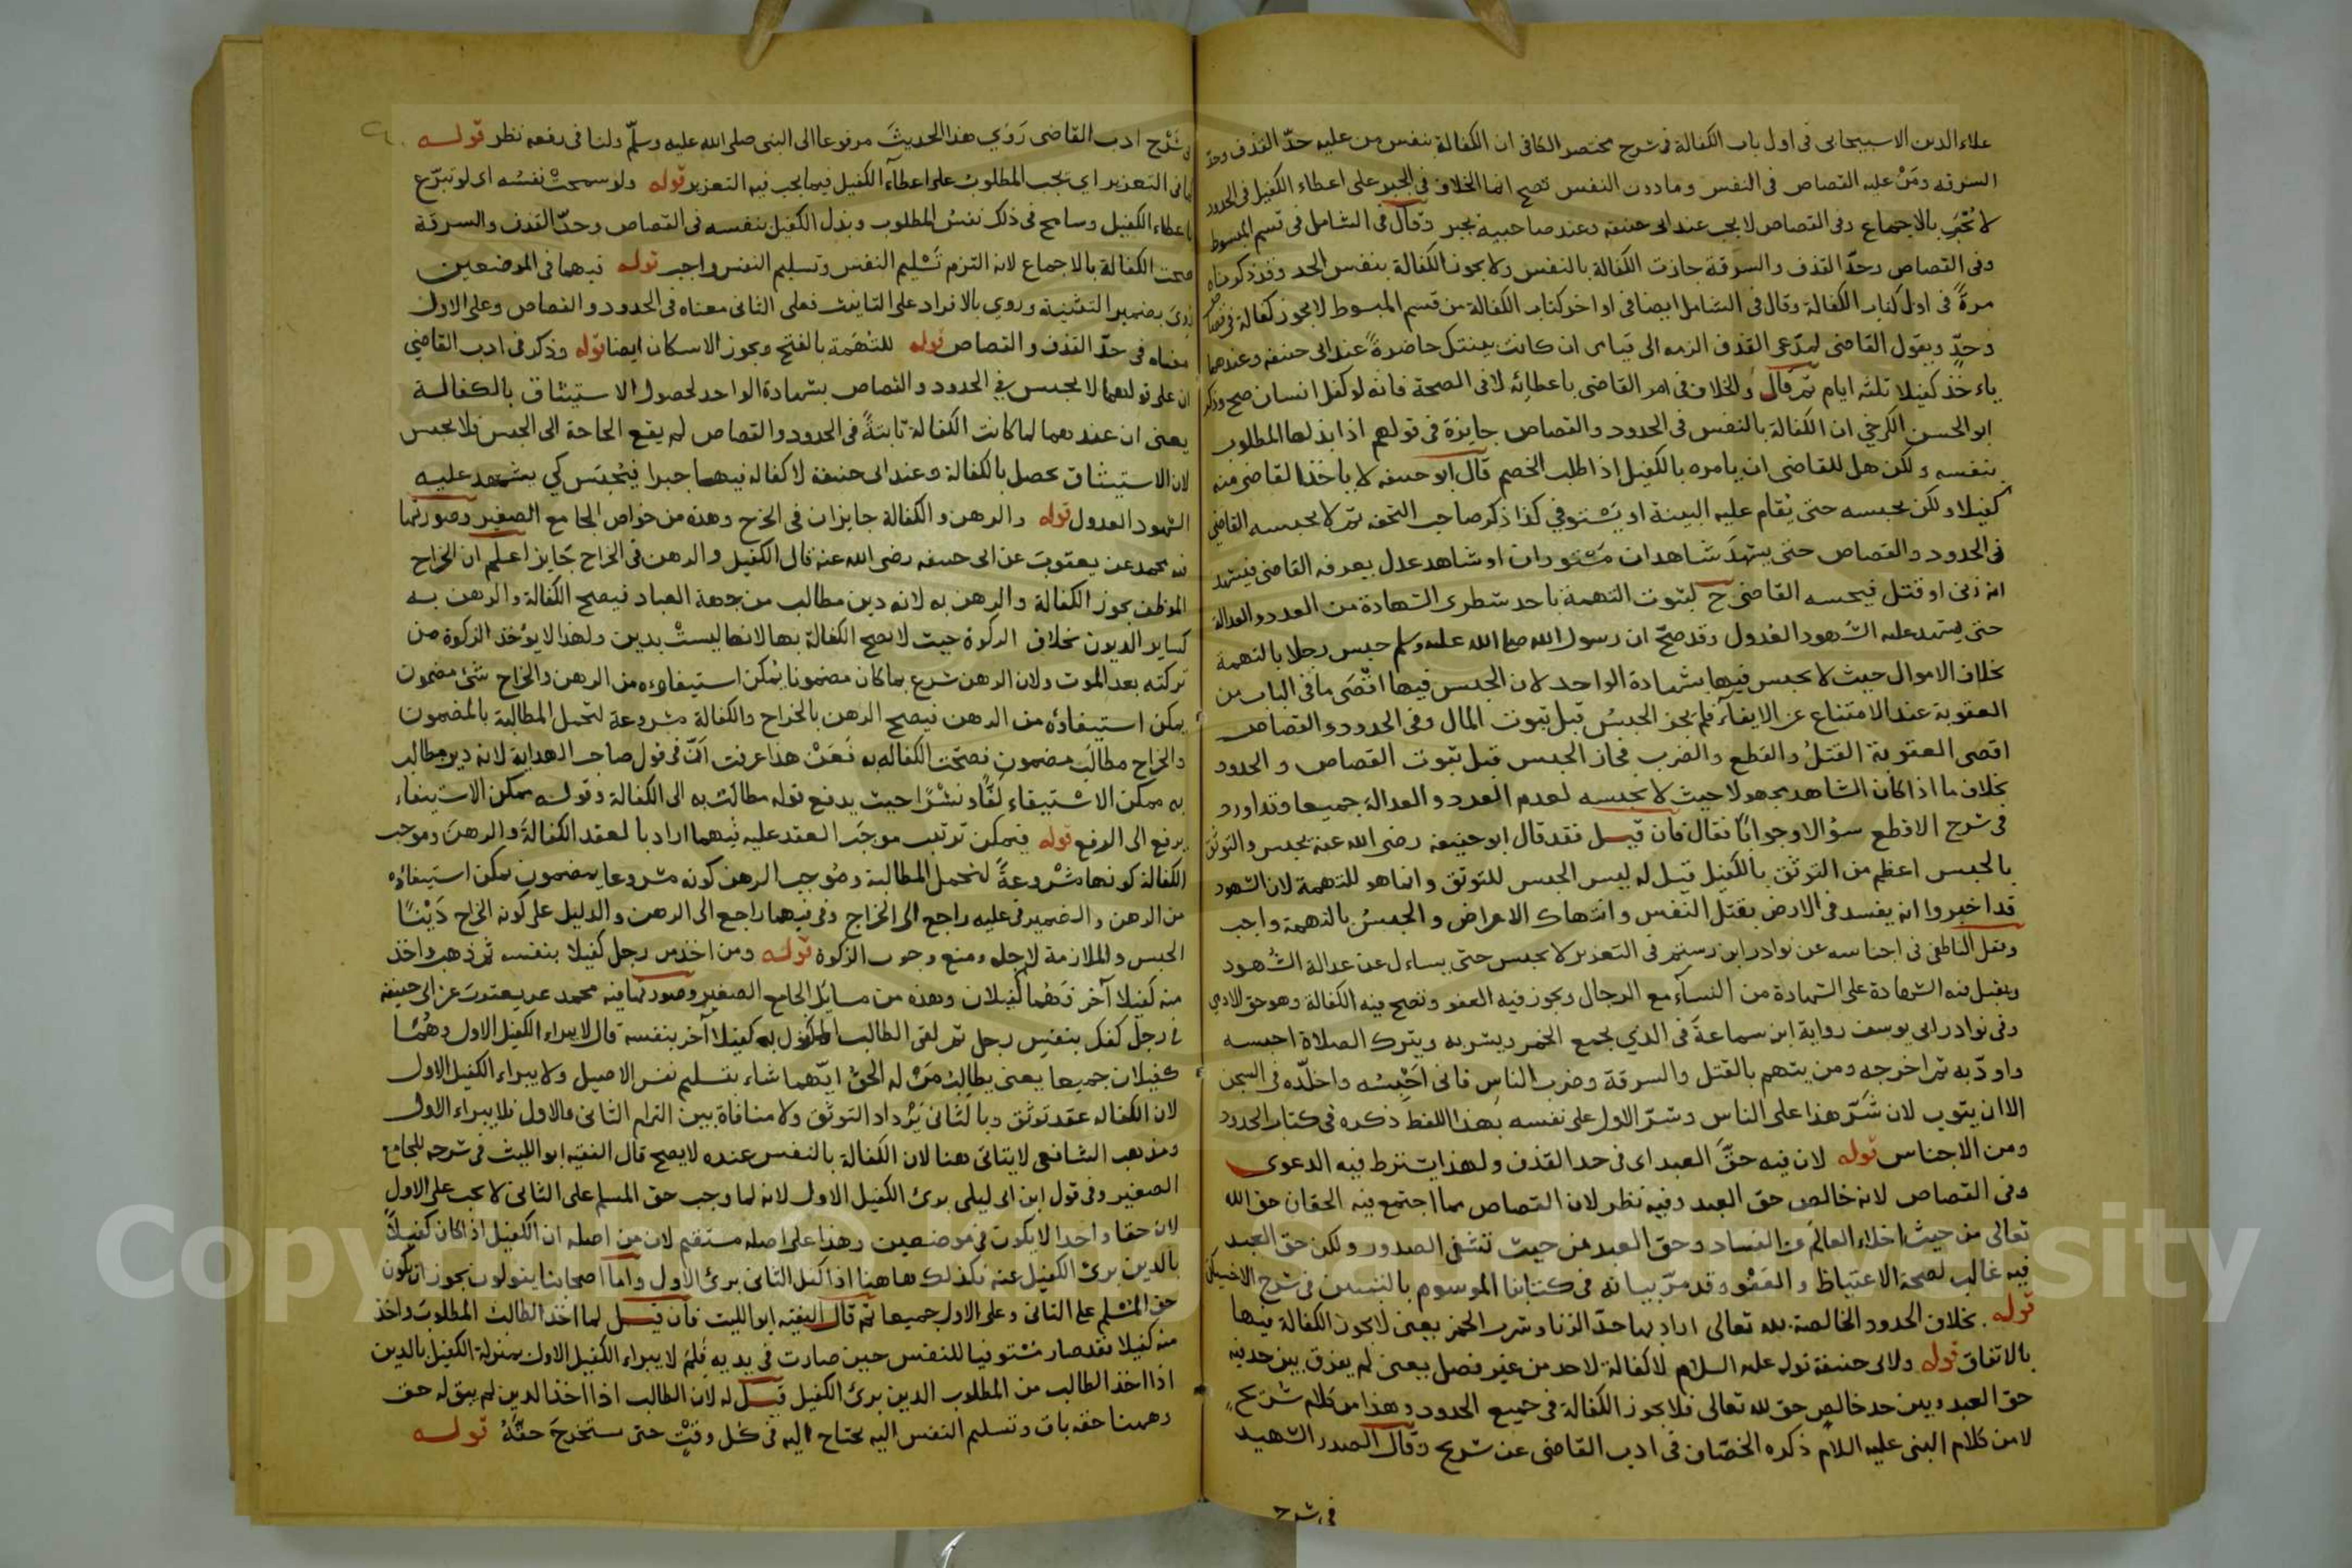 علاء الدين الاسبيجابى فى اول باب الكفالة فى شرح مختصر الكافى ان الكفالة بنفس من عليه حدّ القذف وحدّ
السرقه ومَنْ عليه القصاص فى النفس وما دون النفس تصح انما الخلاف فى الجبر على اعطاء الكفيل فى الحدود
لا يُجْبَر بالاجماع وفى القصاص لا يجب عند ابى حنيفه وعند صاحبيه يجبر وقال فى الشامل فى قسم المبسوط
وفى القصاص وحدّ القذف والسرقة جازت الكفالة بالنفس ولا يجوز الكفالة بنفس الحد وقد ذكرناه
مرةً فى اول كتاب الكفالة وقال فى الشامل ايضا فى اواخر كتاب الكفالة من قسم المبسوط لا يجوز كفالة فى قصاص
وحدٍّ ويقول القاضى لمدّعى القذف الزمه الى قيامى ان كانت بينتك حاضرةً عند ابى حنيفه وعندهما
ياءخذ كفيلا ثلثه ايام ثم قال والخلاف فى امر القاضى باعطائه لا فى الصحة فانه لو كفل انسان صح وذكر
ابو الحسن الكرخي ان الكفالة بالنفس فى الحدود والقصاص جايزة فى قولهم اذا بذلها المطلوب
بنفسه ولكن هل للقاضى ان يامره بالكفيل اذا طلب الخصم قال ابو حنيفه لا ياخذ القاضى منه
كفيلا ولكن يحبسه حتى يُقام عليه البينة او يَسْتوفي كذا ذكر صاحب التحفه ثم لا يحبسه القاضي
فى الحدود والقصاص حتى يشهدَ شاهدان مَسْتوران او شاهد عدل يعرفه القاضى فيشهد
انه زنى او قتل فيحبسه القاضى ح لثبوت التهمة باحد شطرى الشهادة من العدد والعدالة
حتى يشهد عليه الشهود العدول وقد صحّ ان رسول الله صلى الله عليه وسلم حبس رجلا بالتهمة
بخلاف الاموال حيث لا يحبس فيها بشهادة الواحد لان الحبس فيها اقْصَى ما فى الباب من
العقوبة عند الامتناع عن الايفآء فلم يجز الحبسُ قبل ثبوت المال وفى الحدود والقصاص
اقصى العقوبة القتلُ والقطع والضرب فجاز الحبس قبل ثبوت القصاص و الحدود
بخلاف ما اذا كان الشاهد مجهولا حيث لا يحبسه لعدم العدد والعدالة جميعا وقد اورد
فى شرح الاقطع سؤالا وجوابًا فقال فان قيل فقد قال ابو حنيفه رضى الله عنه يحبس والتوثق
بالحبس اعظم من التوثق بالكفيل قيل له ليس الحبس للتوثق وانما هو للتهمة لان الشهود
قد اخبروا انه يفسد فى الارض بقتل النفس وانتهاك الاعراض والحبسُ بالتهمة واجب
ونقل الناطفى فى اجناسه عن نوادر ابن رستم فى التعزير لا يحبس حتى يساءل عن عدالة الشُهود
ويقبل فيه الشهادة على الشهادة من النسآء مع الرجال ويجوز فيه العفو وتصح فيه الكفالة وهو حق الادمي
وفى نوادر ابى يوسف رواية ابن سماعةَ فى الذي يجمع الخمر ويشربه ويترك الصلاة احبسه
واودّبه ثم اخرجه ومن يتهم بالقتل والسرقة وضرب الناس فانى اَحْبِسُه واخلّده فى السجن
الا ان يتوب لان شَرّ هذا على الناس وشرّ الاول على نفسه بهذا اللفظ ذكره فى كتاب الحدود
ومن الاجناس قوله لان فيه حقَّ العبد اى فى حد القذف ولهذا يشترط فيه الدعوى
وفى القصاص لانه خالص حق العبد وفيه نظر لان القصاص مما اجتمع فيه الحقان حق الله
تعالى من حيث اخلاء العالم عن الفساد وحق العبد من حيث تشفى الصدور ولكن حق العبد
فيه غالب لصحة الاعتياض والعَفْو وقد مرّ بيانه فى كتابنا الموسوم بالتبيين فى شرح الاخسيكثى
قوله بخلاف الحدود الخالصة لله تعالى اراد بها حدّ الزنا وشرب الخمر يعنى لا يجوز الكفالة فيها
بالاتفاق قوله ولابى حنيفة قوله عليه السلام لا كفالة لاحد من غير فصل يعنى لم يفرق بين حد فيه
حق العبد وبين حد خالص حق لله تعالى فلا يجوز الكفالة فى جميع الحدود وهذا من كلام شريحٍ
لا من كلام النبى عليه اللام ذكره الخصّاف فى ادب القاضى عن شريح وقال الصدر الشهيد
فى شرح
فى شَرْح ادب القاضى رَوَي هذا الحديثَ مرفوعا الى النبى صلى الله عليه وسلّم ولنا فى رفعه نظر قوله
كما فى التعزير اي يجب المطلوب على اعطآء الكفيل فيما يجب فيه التعزير قوله ولو سمحتْ نفسُه اى لو تبرّع
باعطاء الكفيل وسامح فى ذلك نفسُ المطلوب وبذل الكفيل بنفسه فى القصاص وحدّ القذف والسرقة
صحت الكفالة بالاجماع لانه التزم تَسْليم النفس وتسليم النفس واجب قوله فيهما فى الموضعين
رُوى بضمير التثنية وروي بالافراد على التانيث فعلى الثانى معناه فى الحدود والقصاص وعلى الاول
معناه فى حدّ القذف والقصاص قوله للتُهَمة بالفتح ويجوز الاسكان ايضا قوله وذكر فى ادب القاضي
ان على قولهما لا يحبس فى الحدود والقصاص بشهادة الواحد لحصول الاستيثاق بالكفالة
يعنى ان عندهما لما كانت الكفالة ثابتةً فى الحدود والقصاص لم يقع الحاجة الى الحبس فلا يحبس
لان الاستيثاق يحصل بالكفالة وعند ابى حنيفة لا كفالة فيهما جبرا فيُحْبَس كي يشهد عليه
الشهود العدول قوله والرهن والكفالة جايزان فى الخرج وهذه من خواص الجامع الصغير وصورتها
فيه محمد عن يعقوبَ عن ابى حنيفه رضى الله عنه قال الكفيل والرهن فى الخراج جَايز اعلم ان الخراج
الموظف يجوز الكفالة والرهن به لانه دين مطالب من جهة العباد فيصح الكفالة والرهن به
كساير الديون بخلاف الزكوة حيث لا يصح الكفالة بها لانها ليستْ بدين ولهذا لا يؤخذ الزكوة من
تركته بعد الموت ولان الرهن شرع بما كان مضمونا يُمكن استيفاوءه من الرهن والخراج شئ مضمون
يمكن استيفاؤه من الرهن فيصح الرهن بالخراج والكفالة مشروعة لتحمل المطالبة بالمضمون
والخراج مطالَب مضمون فصحّت الكفاله به فَعَنْ هذا عرفت اَنّ فى قول صاحب الهداية لانه دين مطالب
به ممكن الاسْتيفاء لَفًّا ونشْرًا حيث يدفع قوله مطالَبٌ به الى الكفالة وقوله ممكن الاستيفاء
يرفع الى الرفع قوله فيمكن ترتب موجَب العقد عليه فيهما اراد بالعقد الكفالةَ والرهنَ وموجب
الكفالة كونها مَشْروعةً لتحمل المطالبة ومُوجب الرهن كونه مشروعا بمضمون يمكن استيفاؤه
من الرهن والضمير فى عليه راجع الى الخراج وفى فيهما راجع الى الرهن والدليل على كونه الخراج دَيْنًا
الحبس والملازمة لاجله ومنع وجوب الزكوة قوله ومن اخذ من رجل كفيلا بنفسه ثم ذهب واخذ
منه كفيلا آخر فهُما كفيلان وهذه من مسايَل الجامع الصغير وصورتها فيه محمد عن يعقوبَ عن ابى حنيفه
فى رجلٍ كفل بنفسِ رجل ثم لقى الطالب المكفول به كفيلا آخر بنفسه قال لا يبراء الكفيل الاول وهُمَا
كفيلان جميعا يعنى يطالِبُ مَنْ له الحقُ ايّهما شاء بتسليم نفس الاصيل ولا يبراء الكفيل الاول
لان الكفاله عقد توثق وبالثانى يَزْداد التوثق ولا منافاة بين التزام الثانى والاول فلا يبراء الاول
ومذهب الشافعى لا يتاتى هنا لان الكفالة بالنفس عنده لا يصح قال الفقيه ابو الليث فى شرحه للجامع
الصغير وفى قول ابن ابى ليلى برئ الكفيل الاول لانه لما وجب حق المسلم على الثانى لا يجب على الاول
لان حقا واحدا لا يكون فى موضعين وهذا على اصله مستقيم لان من اصله ان الكفيل اذا كان كفيلاً
بالدين برئ الكفيل عنه فكذلك هاهنا اذا كفل الثانى برئ الاول واما اصحابنا يقولون يجوز ان يكون
حق المسْلم على الثانى وعلى الاول جميعا ثم قال الفقيه ابو الليث فان قيل لما اخذ الطالب المطلوبَ واخذ
منه كفيلا فقد صار مُسْتوفيا للنفس حين صارت فى يديه فَلِمَ لا يبراء الكفيل الاول بمنزلة الكفيل بالدين
اذا اخذ الطالب من المطلوب الدين برئ الكفيل قيل له لان الطالب اذا اخذ الدين لم يبق له حق
وههنا حقه باق وتسليم النفس اليه يحتاج اليه فى كل وقتٍ حتى يستخرجَ حقّهُ قوله